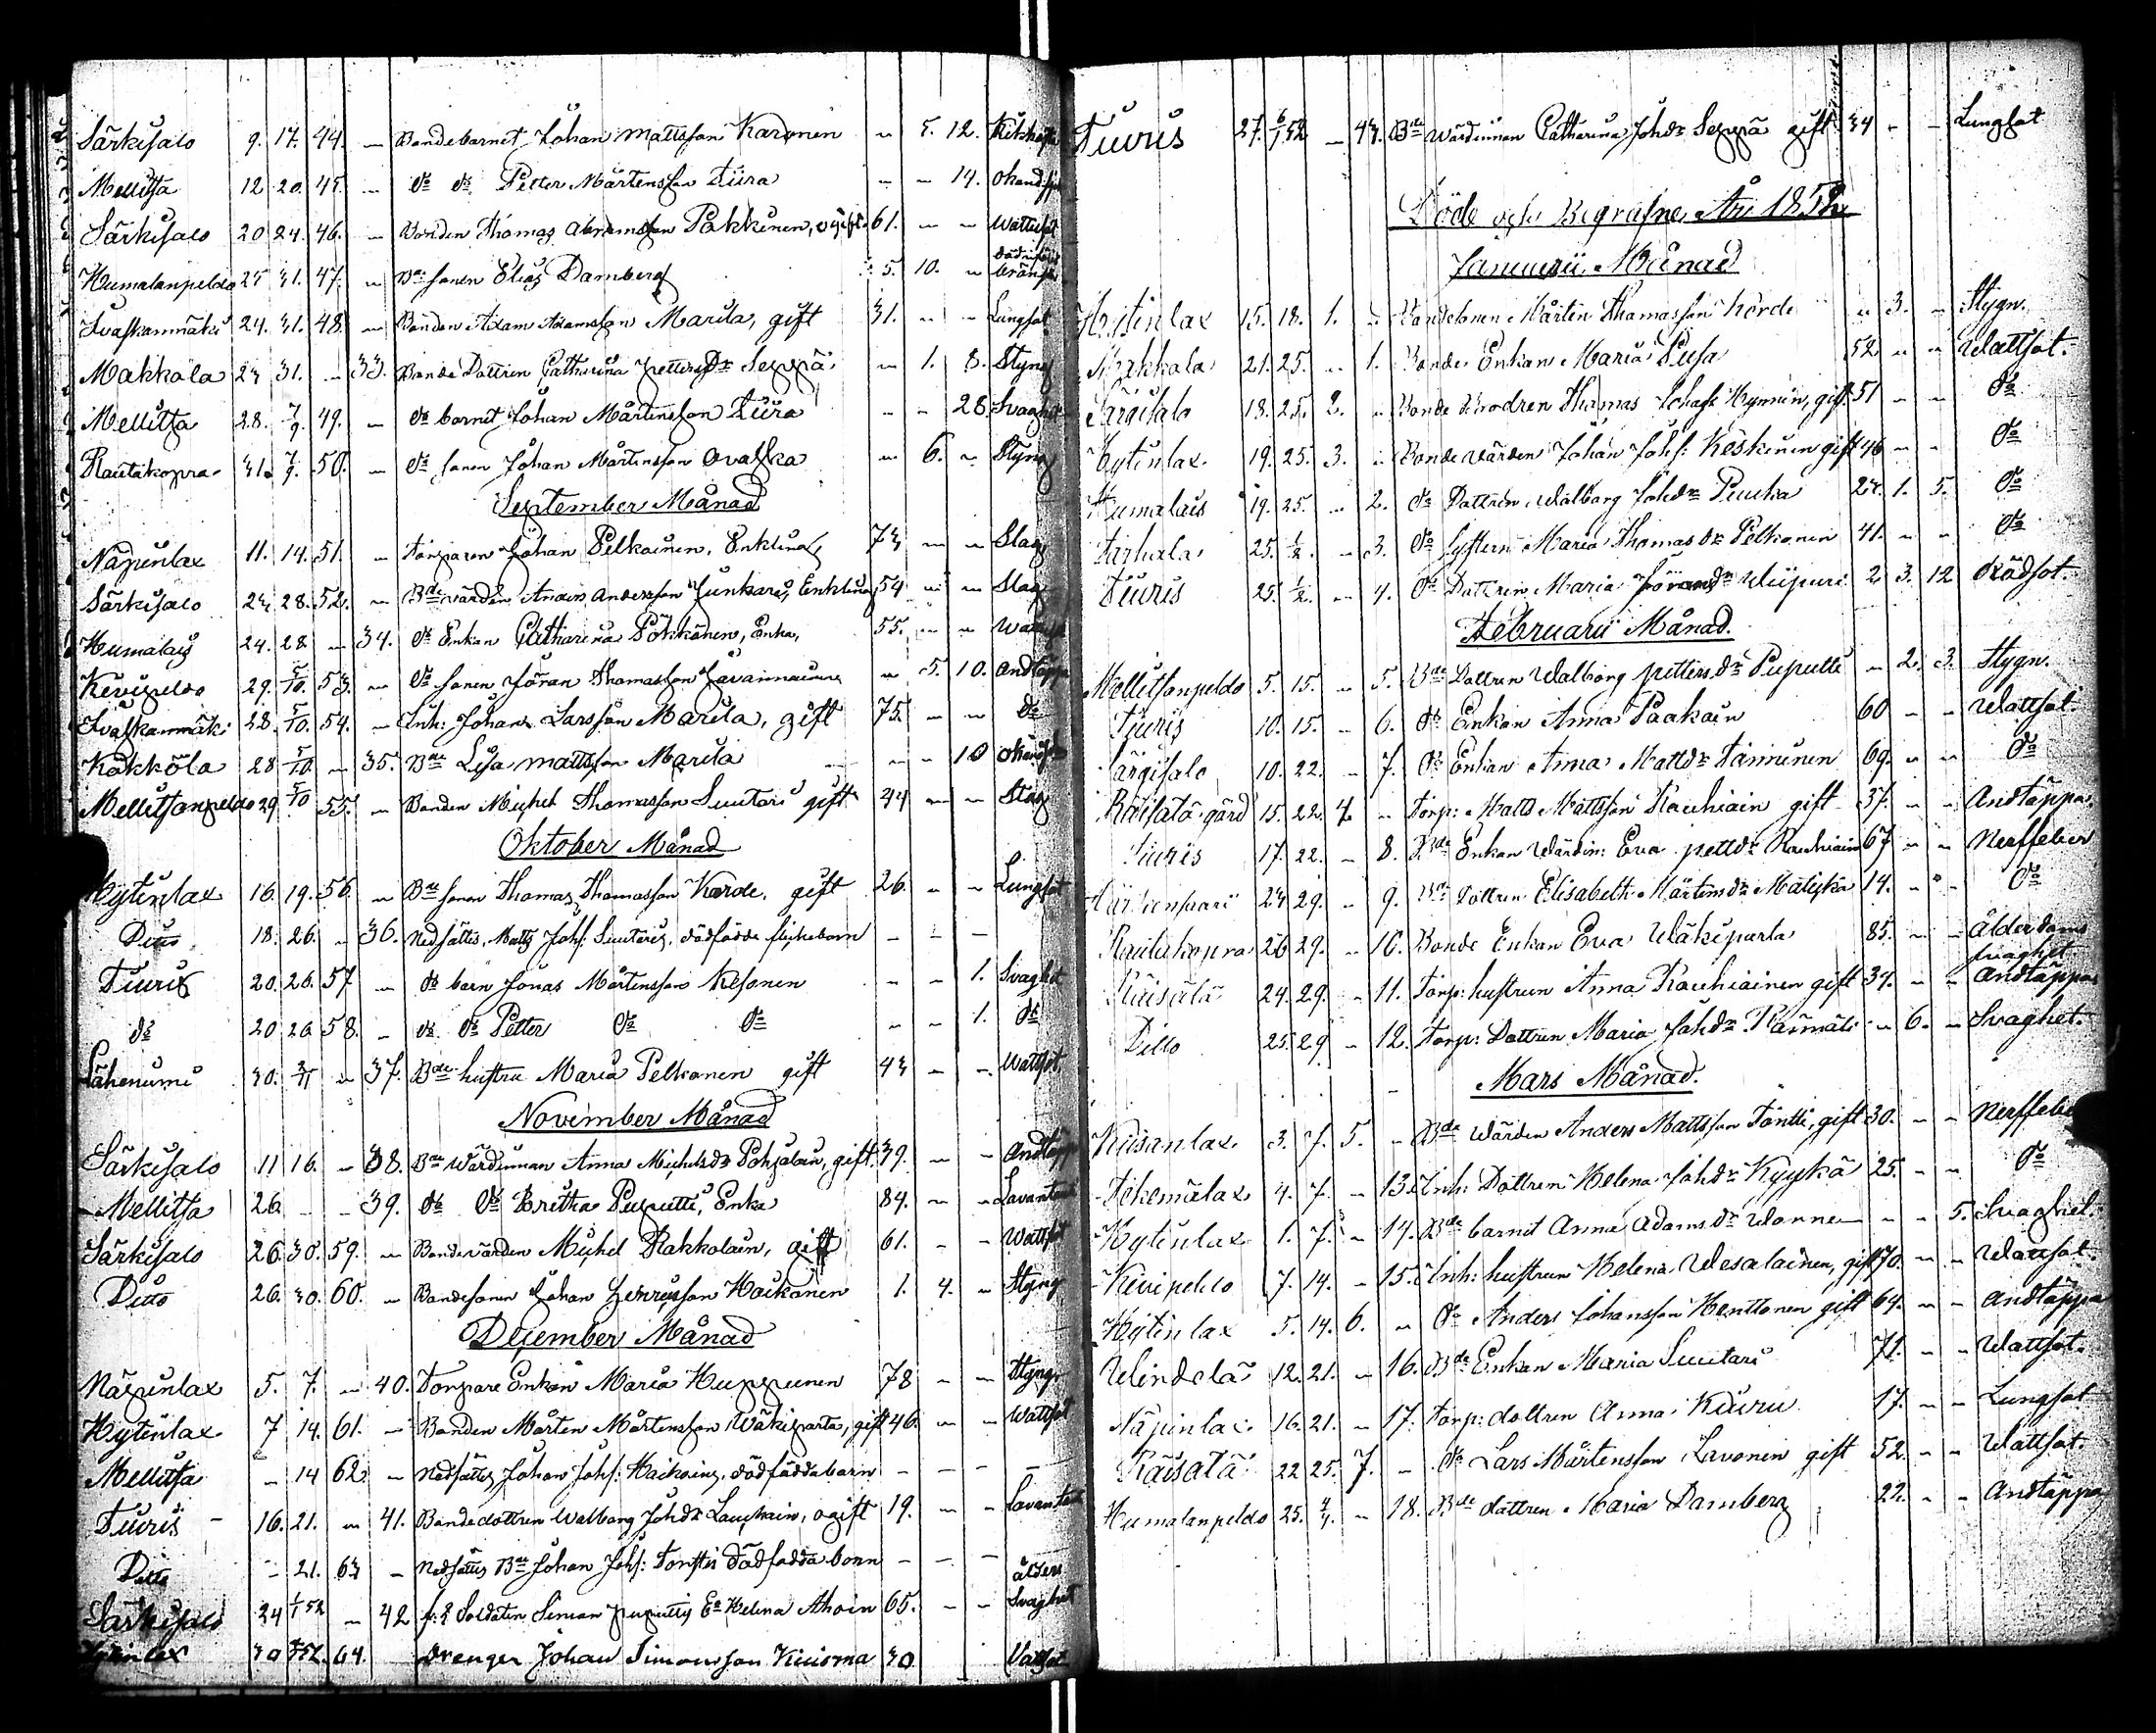 Särkisalo 9. 17. 44. — Bondebarnet Johan Mattsson Karonen — 5. 12. Kikhosta
Mellitsä 12 20. 45. — do do Petter Mårtensson Tiira — — 14. Okänd
Särkisalo 20 24. 46. — Bonden Thomas Abramsson Pakkinen, ogift 61. — — Wattusot
Humalanpeldo 25 31. 47. — Bde sonen Elias Damberg 5. 10. —
Suafkanmäki 24. 31. 48. — Bonden Adam Adamsson Marila, gift 31. — — Lungsot
Makkola 23 31. — 33. Bonde Dottren Catharina Pettersdr Seppä — 1. 8. Styng
Mellitsä 28. 7/9. 49. — do barnet Johan Mårtensson Tiira — — 28. Svaghet
Rautakopra 31. 7/9. 50. — do sonen Johan Mårtensson Ovaska — 6. — Styng
September Månad
Näpinlax 11. 14. 51. — Torparen Johan Pelkoinen, Enkling 73 — — Slag
Särkisalo 23 28. 52. — Bde värden Anders Andersson Junkari, Enkling 54 — — Slag
Humalais 24. 28. — 34. do Enkan Catharina Pökkänen, Enka, 55. — —
Kevipeldo 29. 5/10. 53. — do sonen Jöran Thomasson — 5. 10. Andtäppa
Suafkanmäki 28. 5/10. 54. — Inh: Johan Larsson Marila, gift 75. — — do
Kakköla 28 5/10. — 35. Bde Lisa Mattsson Marila — — 10 Okänd
Mellitsanpeldo 29. 5/10 55. — Bonden Michel Thomasson Suutari gift 44 — — Slag
Oktober Månad
Hytinlax 16. 19. 56. — Bde sonen Thomas Thomasson Korde, gift 26. — — Lungsot
Ditto 18. 26. — 36. Nedsättes, Matts Johs: Suutaris, dödfödde flickebarn — — —
Tiuris 20. 26. 57 — do barn Jonas Mårtensson Kesonen — — 1. Svaghet
do 20 26 58. — do do Petter do do — — 1. do
Lähenumi 30. 2/11 — 37. Bde hustru Maria Pelkonen gift 43 — — Wattsot
November Månad
Särkisalo 11 16. — 38. Bde Wärdinnan Anna Michelsdr Pohjalain, gift. 39. — — Andtäppa
Mellitsä 26. — — 39. do do Britha Puputti, Enka 84. — — Lavantauti
Särkisalo 26 30. 59. — Bondevärden Michel Rakkolain, gift 61. — — Wattsot
Ditto 26. 30. 60. — Bondesonen Johan Henrisson Hoikonen 1. 4. — Styng
December Månad
Näpinlax 5. 7. — 40. Torpare Enkan Maria Huppunen 78 — — Styng
Hytinlax 7 14. 61. — Bonden Mårten Mårtensson Wäkiparta, gift 46. — — Wattsot
Mellitsä — 14 62. — Nedsättes Johan Johs: Haikoins, dödföddabarn — — —
Tiuris 16. 21. — 41. Bondedottren Walborg Johdr Lauhain, ogift 19. — — Lavantauti
Ditto — 21. 63 — Nedsättes Bde Johan Johs: Tonttis dödföddabarn — — —
Särkisalo 24 1/1 52 — 42 f: d Soldaten Simon Puputtis Ea Helena Ahoin 65. — — ålders Svaghet
Hytinlax 30 52. 64. Drengen Johan Simonsson Kiisma 30 Vattsot
Tiuris 27. 6/1 52 — 43. Bde Wärdinnan Catharina Johdr Seppä gift 34 — — Lungsot
Döde och Begrafne År 1852
Januarii Månad
Hytinlax 15. 18. 1. — Bondesonen Mårten Thomasson Korde — 3. — Stygn.
Makkola 21. 25. — 1. Bonde Enkan Maria Pusa 52 — — Wattsot.
Särgisalo 18. 25. 2. — Bonde Brodren Thomas Johs: Hynnin, gift 51 — — do
Hytinlax 19. 25. 3. — Bondevärden Johan Johs: Koskinen gift 46 — — do
Humalais 19. 25. — 2. do Dottren Walborg Johdr Puuka 24. 1. 5. do
25. 1/2. — 3. do Systern Maria Thomasdr Pelkonen 41. — — do
Tiuris 25. 1/2. — 4. do Dottren Maria Jöransdr Wiipuri 2 3. 12 Rödsot.
Februarii Månad.
Mellitsanpeldo 5. 15. — 5. Bde Dottren Walborg Pettersdr Puputti — 2. 3. Stygn.
Tiuris 10. 15. — 6. do Enkan Anna Paakain 60 — — Wattsot
Särgisalo 10. 22. — 7. do Enkan Anna Mattsdr Tanninen 69. — — do
Räisälä gård 15. 22. 4. — Torp: Matts Mattsson Rauhiain gift 37. — — Andtäppa
Tiuris 17. 22. — 8. Bde Enkan Wärdin: Eva Pettdr Rauhiain 67 — — Nerffeber
24 29. — 9. Bde Dottren Elisabeth Mårtensdr Matikka 14. — — do
Rautukopra 26 29. — 10. Bonde Enkan Eva Wäkiparta 85. — — Ålderdoms svaghet
Räisälä 24. 29. — 11. Torp: hustrun Anna Rauhiainen gift 34. — — Andtäppa
Ditto 25. 29 — 12. Torp: Dottren Maria Johdr Pärmäli — 6. — Svaghet.
Mars Månad.
Riisanlax 3. 7. 5. — Bde Wärden Anders Mattsson Tontti, gift 30. — — Nerffeber
Tehemälax 4. 7. — 13. Inh: Dottren Helena Johdr Kyykä 25. — — do
Hytinlax 1. 7. — 14. Bde barnet Anna Adamsdr Wonnen — — 5. Svaghet.
Kivipeldo 7. 14. — 15. Inh: hustrun Helena Wesalainen, gift 70. — — Wattsot.
Hytinlax 5. 14. 6. — do Anders Johansson Henttonen gift 64. — — Andtäppa
Windela 12. 21. — 16. Bde Enkan Maria Suutari 71. — — Wattsot.
Näpinlax 16. 21. — 17. Torp: dottren Anna Kauru 17. — — Lungsot
Räisälä 22 25. 7. — do Lars Mårtensson Lavonen gift 52. — — Wattsot.
Humalanpeldo 25. 4/4. — 18. Bde dottren Maria Damberg 22. — — Andtäppa